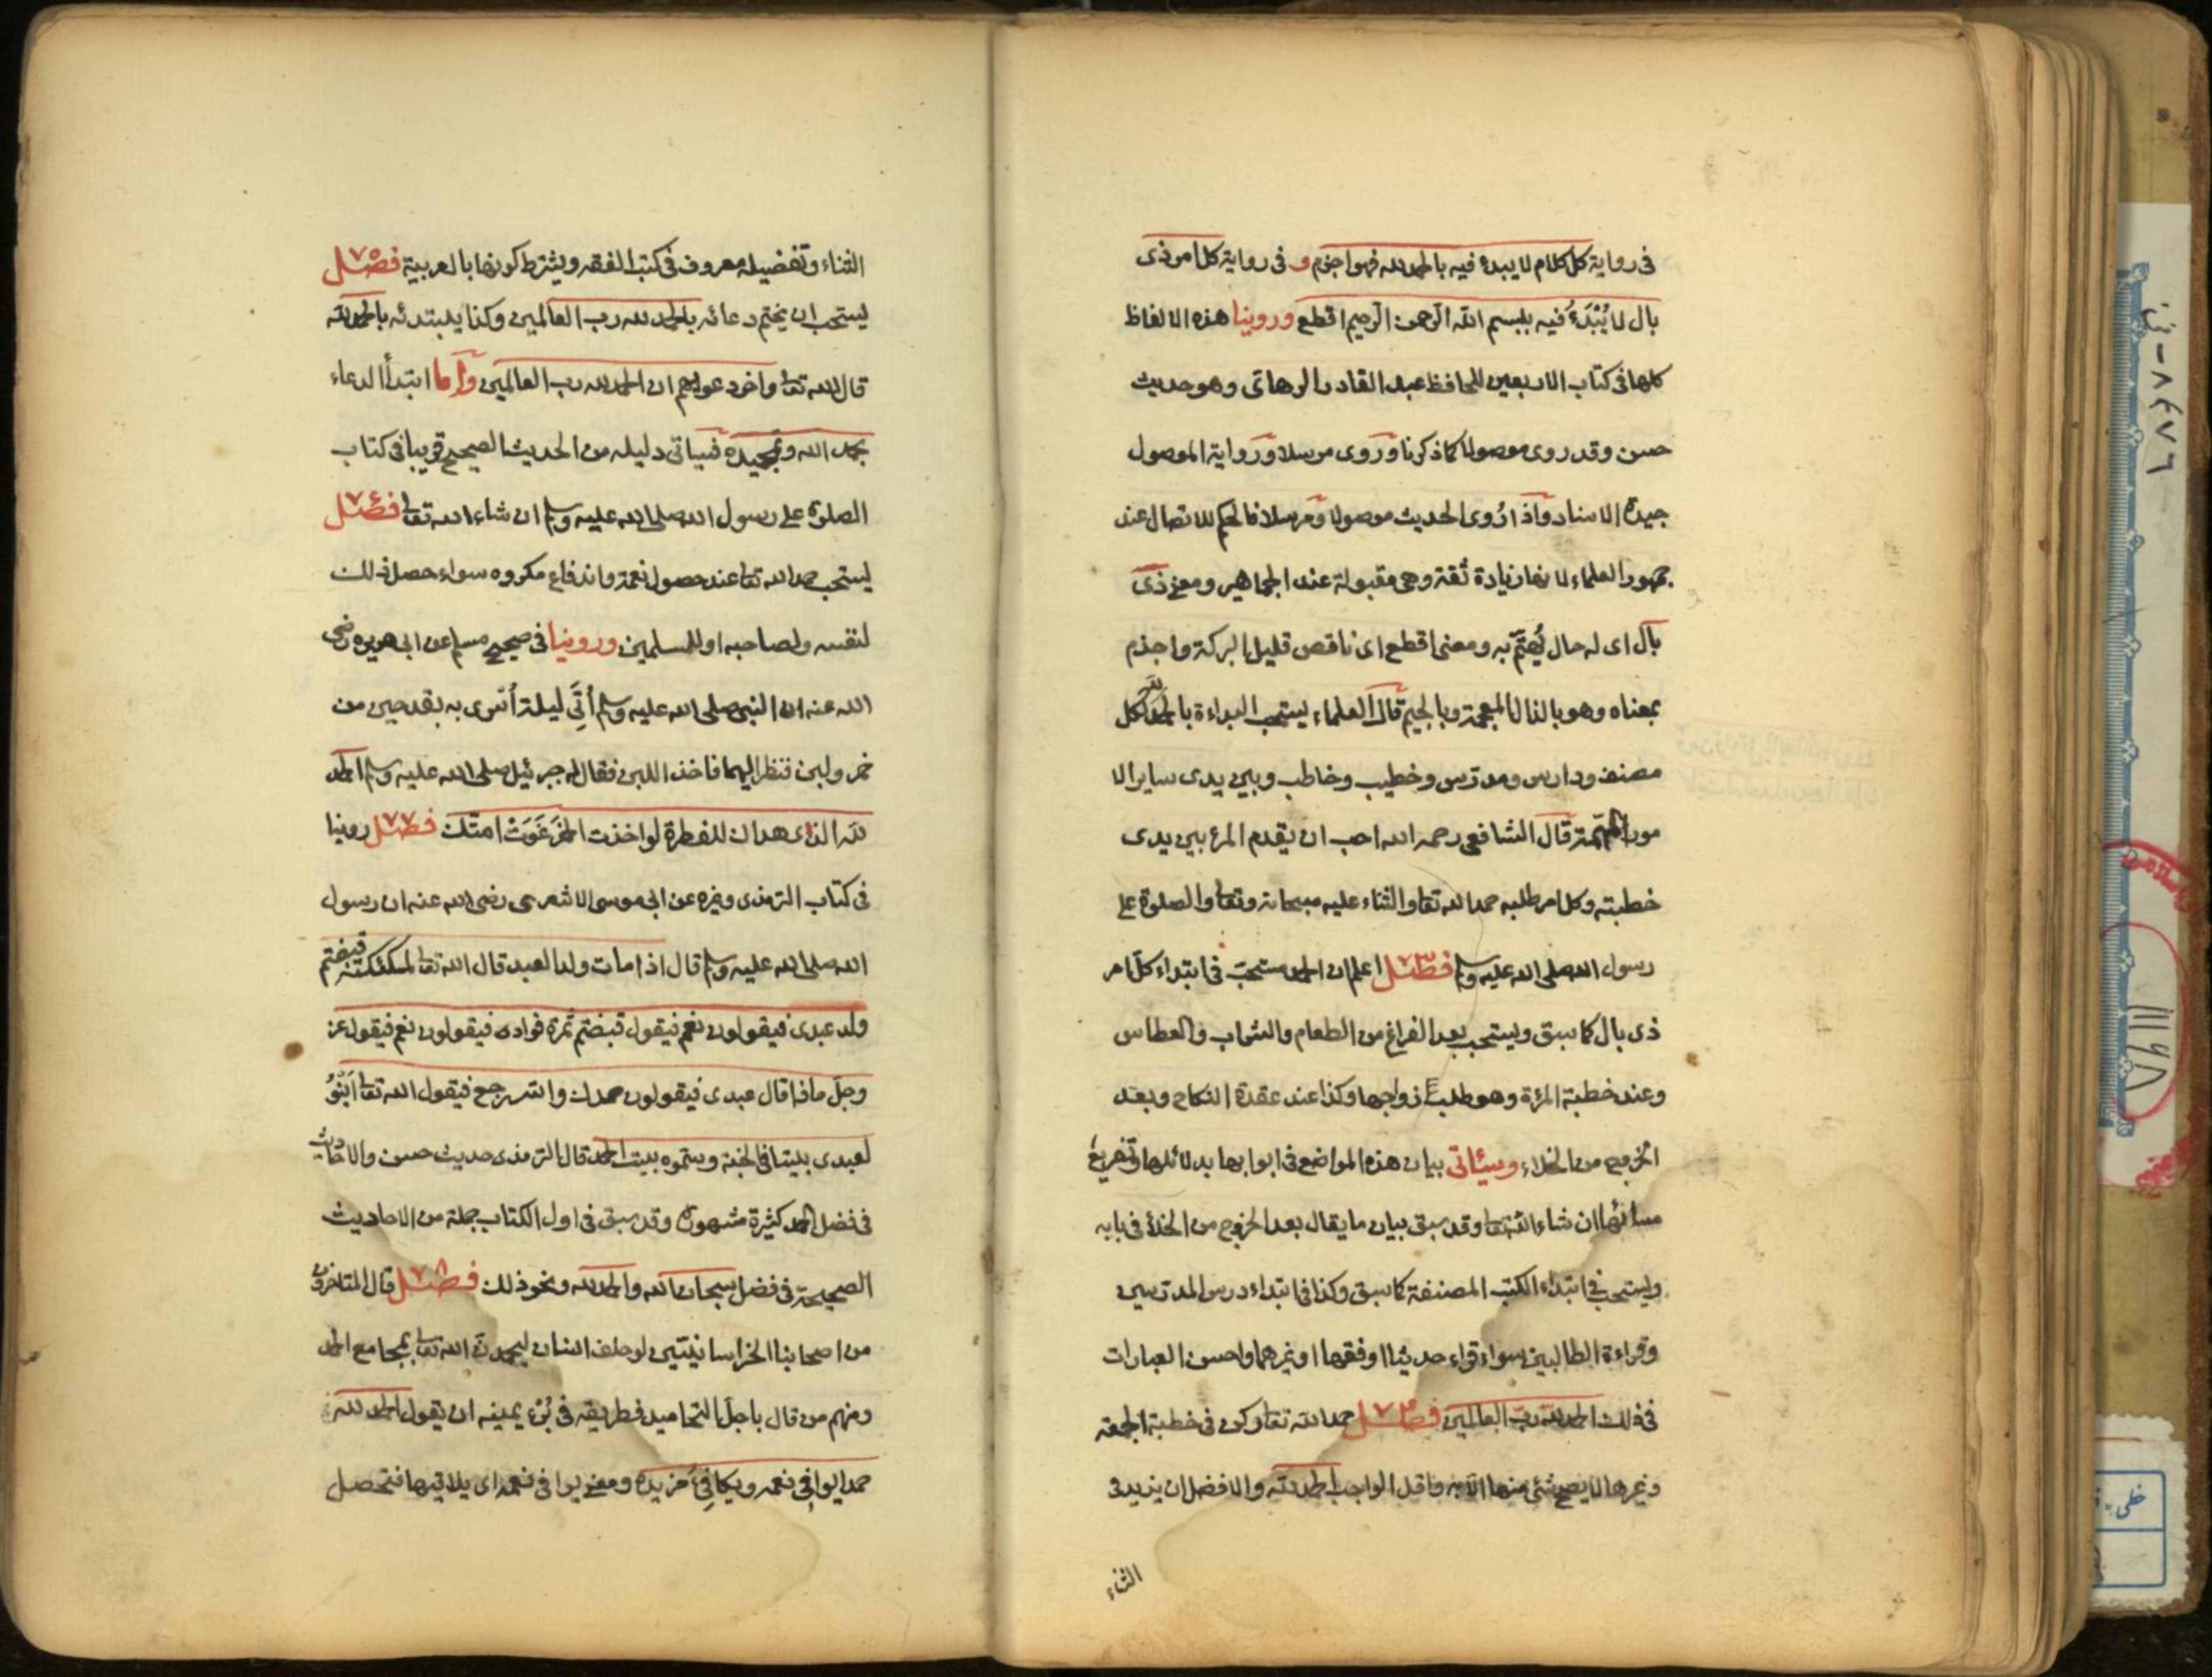 في رواية كل كلام لا يبدء فيه بالحمد لله فهو اجذم و في رواية كل امر ذى
بال لا يُبْدَءُ فيه ببسم الله الرحمن الرحيم اقطع وروينا هذه الالفاظ
كلها في كتاب الاربعين للحافظ عبد القادر الرهاتى وهو حديث
حسن وقد روى موصولا كما ذكرنا وروى مرسلا ورواية الموصول
جيدة الاسناد واذا رُوى الحديث موصولا ومرسلا فالحكم للاتصال عند
جمهور العلماء لانها زيادة ثقة وهي مقبولة عند الجماهير ومعنى ذى
بال اى له حال يُهتَمّ به ومعنى اقطع اى ناقص قليل البركة واجذم
بمعناه وهو بالذال المعجمة وبالجيم قال العلماء يستحب البداءة بالحمد لله لكل
مصنف ودارس ومدرّس وخطيب وخاطب وبين يدى ساير الا
مور المهمّة قال الشافعى رحمه الله احب ان يقدم المرء بين يدى
خطبته وكل امر طلبه حمد الله تعا والثناء عليه سبحانه وتعا والصلوة على
رسول الله صلى الله عليه وسلم فصل ٧٣ اعلم ان الحمد مستحبّ في ابتداء كل امر
ذى بال كما سبق ويستحب بعد الفراغ من الطعام والشراب والعطاس
وعند خطبة المرءة وهو طلب زواجها وكذا عند عقدة النكاح وبعد
الخروج من الخلاء وسيئاتى بيان هذه المواضع في ابوابها بدلائلها وتفريع
مسائلها ان شاء الله تعا وقد سبق بيان ما يقال بعد الخروج من الخلاء في بابه
ويستحب في ابتداء الكتب المصنفة كما سبق وكذا في ابتداء درس المدرّسين
وقراءة الطالبين سواء قراء حديثا او فقها او غيرهما واحسن العبارات
في ذلك الحمد لله ربّ العالمين فصل ٧٤ حمد الله تعا ركن في خطبة الجمعة
وغيرها لا يصح شئ منها الا به واقل الواجب الحمد لله والافضل ان يزيد في
الثناء
الثناء وتفضيله معروف في كتب الفقه ويشترط كونها بالعربية فصل ٧٥
يستحب ان يختم دعائه بالحمد لله رب العالمين وكذا يبتدئه بالحمد لله
قال الله تعا واخر دعويهم ان الحمد لله رب العالمين واما ابتدأ الدعاء
بحمد الله وتمجيده فسياتى دليله من الحديث الصحيح قريبا في كتاب
الصلوة على رسول الله صلى الله عليه وسلم ان شاء الله تعا فصل ٧٦
يستحب حمد الله تعا عند حصول نعمة واندفاع مكروه سواء حصل ذلك
لنفسه ولصاحبه او للمسلمين وروينا في صحيح مسلم عن ابى هريره رضى
الله عنه ان النبى صلى الله عليه وسلم أُتِيَ ليلة أُسْرى به بقدحين من
خمر ولبن فنظر اليهما فاخذ اللبن فقال له جبرئيل صلى الله عليه وسلم الحمد
لله الذى هداك للفطرة لو اخذت الخمر غَوَتْ امتك فصل ٧٧ روينا
في كتاب الترمذى وغيره عن ابى موسى الاشعرى رضى الله عنه ان رسول
الله صلى الله عليه وسلم قال اذا مات ولد العبد قال الله تعا لملئكته قبضتم
ولد عبدى فيقولون نعم فيقول قبضتم ثمرة فواده فيقولون نعم فيقول عز
وجلّ ماذا قال عبدى فيقولون حمدك واسترجع فيقول الله تعا ابْنُوْ
لعبدى بيتا في الجنة وسمّوه بيت الحمد قال الترمذى حديث حسن والاحاديث
في فضل الحمد كثيرة مشهورة وقد سبق في اول الكتاب جملة من الاحاديث
الصحيحة في فضل سبحان الله والحمد لله ونحو ذلك فصل ٧٨ قال المتاخرون
من اصحابنا الخراسانيّين لو حلف انسان ليحمدنّ الله تعا بمجامع الحمد
ومنهم من قال باجلّ التحاميد فطريقه في بُرْء يمينه ان يقول الحمد لله
حمدا يوافي نعمه ويكافِئ مزيده ومعنى يوافى نعمه اى يلاقيها فتحصل